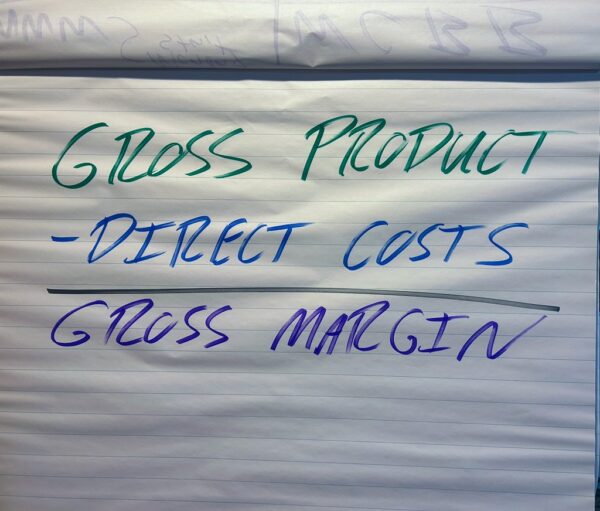 GROSS PRODUCT
-DIRECT COSTS
GROSS MARGIN